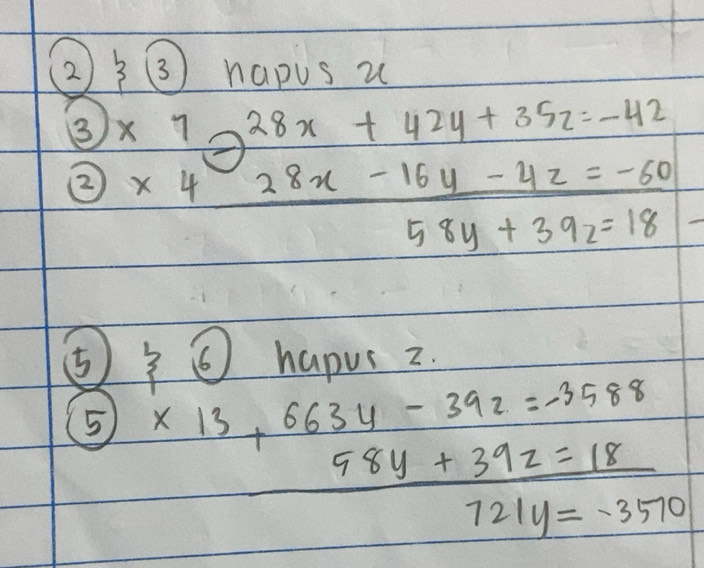 ② & ③ hapus x
③ × 7 28x + 42y + 35z = -42
② × 4 ⊖ 28x - 16y - 4z = -60
58y + 39z = 18 -
⑤ & ⑥ hapus z.
⑤ × 13 663y - 39z = -3588
+ 58y + 39z = 18
721y = -3570